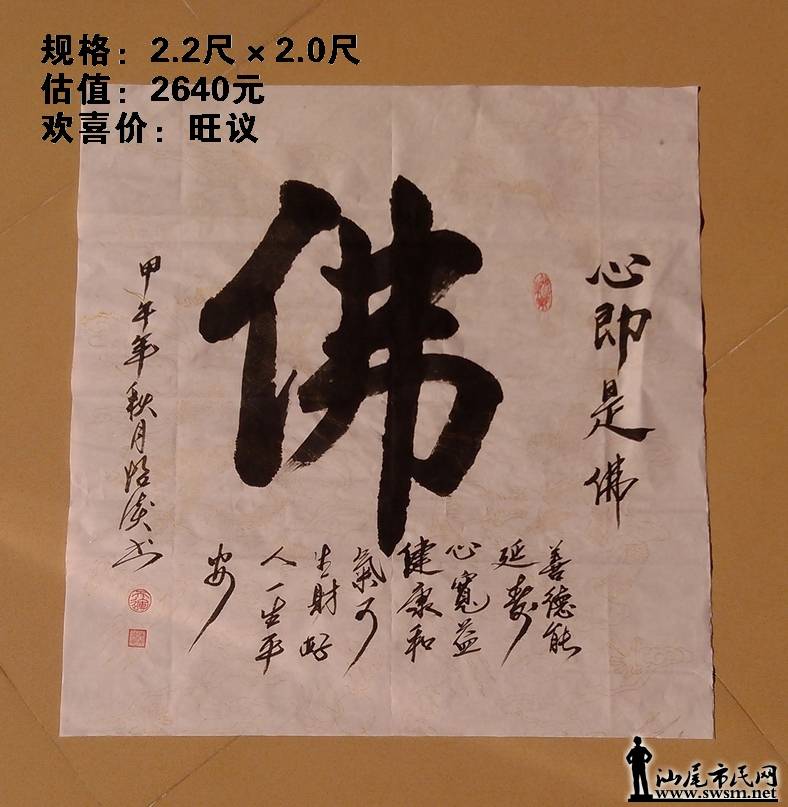 规格：2.2尺×2.0尺
估值：2640元
欢喜价：旺议
心即是佛
佛
善德能
延寿
心寬益
健康和
氣可
生財好
人一生平
安
甲午年秋月
书
汕尾市民网
www.swsm.net